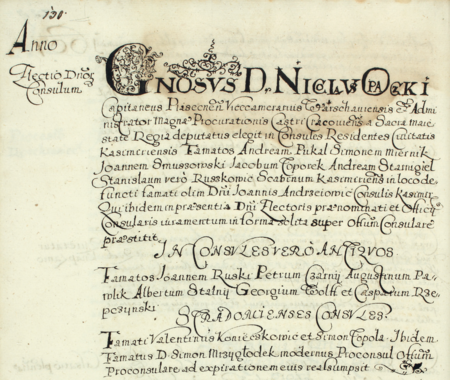 130.
Anno
Electio Dnoꝝ
Consulum
GNOSUS D. NICLUS PACZKI
Capitaneus Vicecameranus Warschauiensis et Admi
nistrator Magnæ Procurationis Castri Cracouien: a Sacra maie
state Regia deputatus elegit in Consules Residentes Ciuitatis
Kasimiriensis Famatos Andream Pukal Simonem Miernik
Joannem Smussowski Jacobum Toporek Andream Stamigiel
Stanislaum vero Russkowic Scabinum Kasimirien: in loco de
functi famati olim Dni Joannis Andrzeiowic Consulis Kasimir:
Qui ibidem in præsentia Dni Electoris prænominati et Officÿ
Consularis iuramentum in forma solita super Offium Consulare
præstitit.
IN CONSULES VERO ANTIQUOS
Famatos Joannem Ruski Petrum Czarnÿ Augustinum Pa,
wlik Albertum Stalnÿ Georgium Wolff et Casparum Rze,
pczynski
STRADOMIENSES CONSULES
Famati Valentinus Konieczkowic et Simon Topola. Ibidem
Famatus D. Simon Mrzygłodek modernus Proconsul Offium
Proconsulare ad expirationem eius reassumpsit